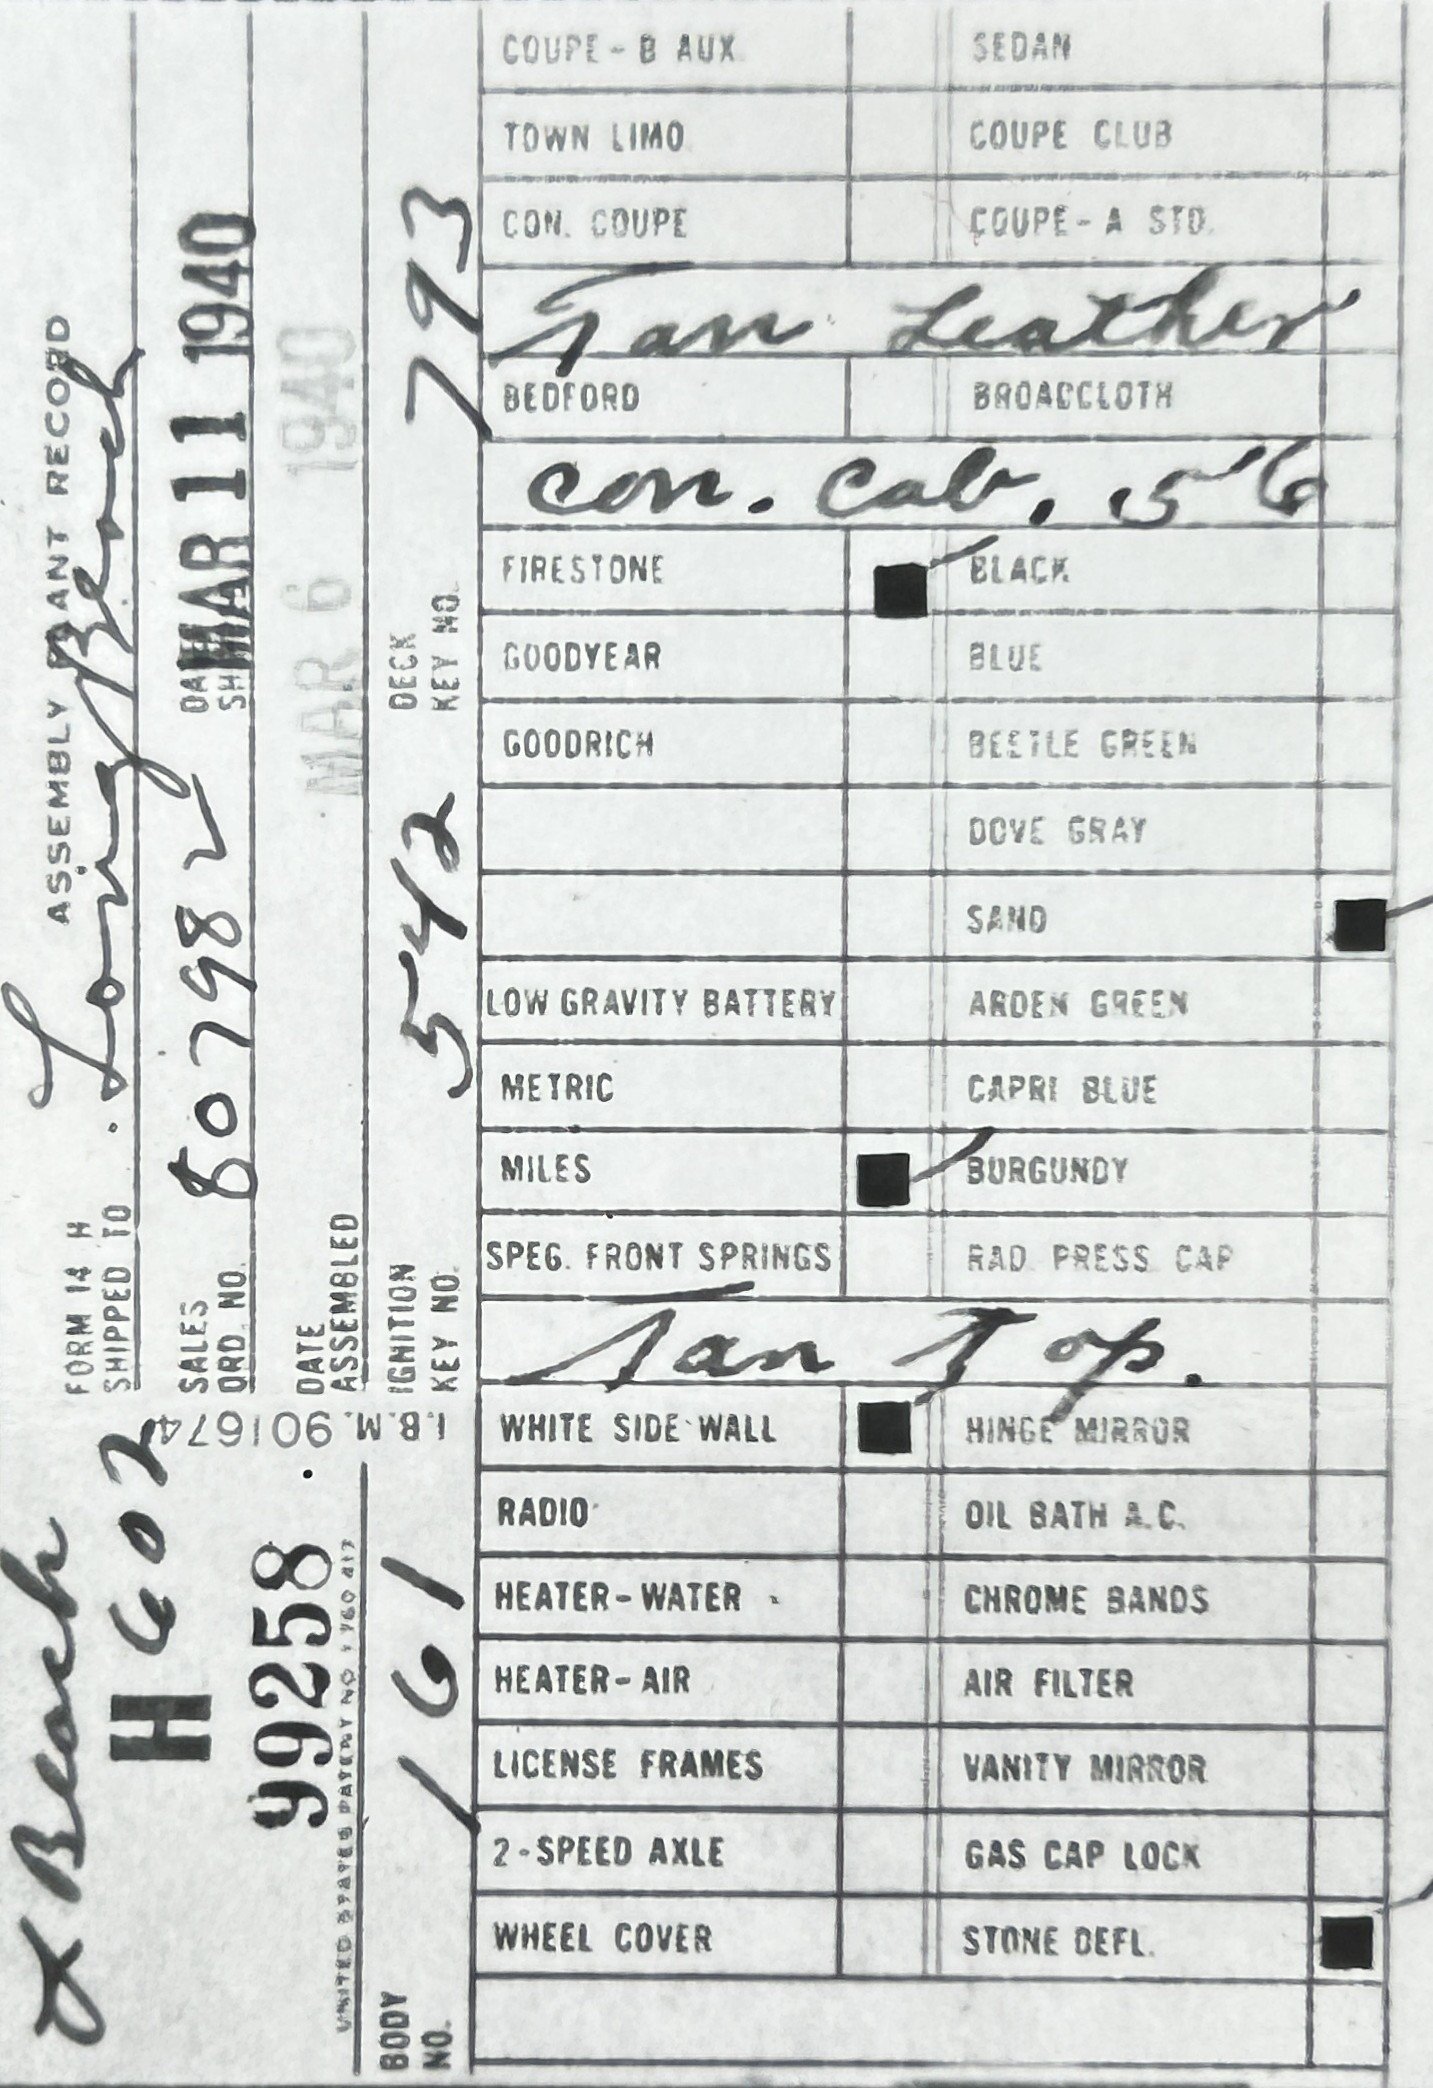 FORM 14 H
ASSEMBLY PLANT RECORD
SHIPPED TO
Long Beach
SALES ORD. NO.
807982
DATE
MAR 11 1940
DATE ASSEMBLED
MAR 6 1940
IGNITION KEY NO.
542
DECK KEY NO.
793
L Beach
H 602
99258
I.B.M. 901674
BODY NO.
161
COUPE - B AUX. SEDAN
TOWN LIMO COUPE CLUB
CON. COUPE COUPE - A STD.
Tan Leather
BEDFORD BROADCLOTH
Con. Cab. 56
FIRESTONE BLACK
GOODYEAR BLUE
GOODRICH BEETLE GREEN
DOVE GRAY
SAND
LOW GRAVITY BATTERY ARDEN GREEN
METRIC CAPRI BLUE
MILES BURGUNDY
SPEG. FRONT SPRINGS RAD. PRESS. CAP
Tan Top.
WHITE SIDE WALL HINGE MIRROR
RADIO OIL BATH A.C.
HEATER - WATER CHROME BANDS
HEATER - AIR AIR FILTER
LICENSE FRAMES VANITY MIRROR
2 - SPEED AXLE GAS CAP LOCK
WHEEL COVER STONE DEFL.